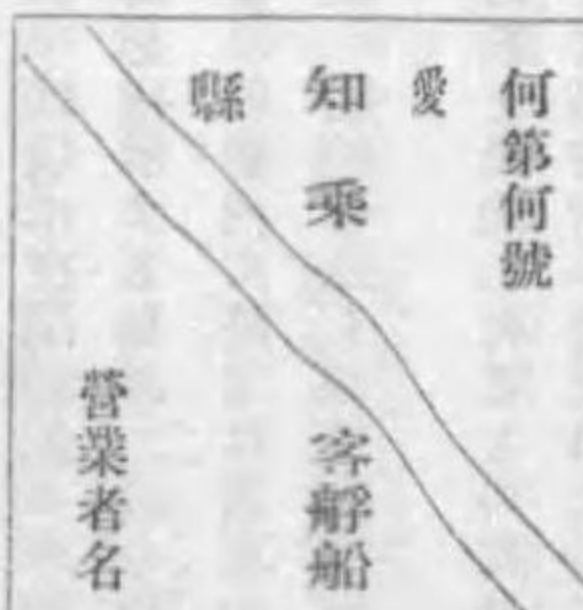 何第何號
愛知縣
乘客艀船
營業者名